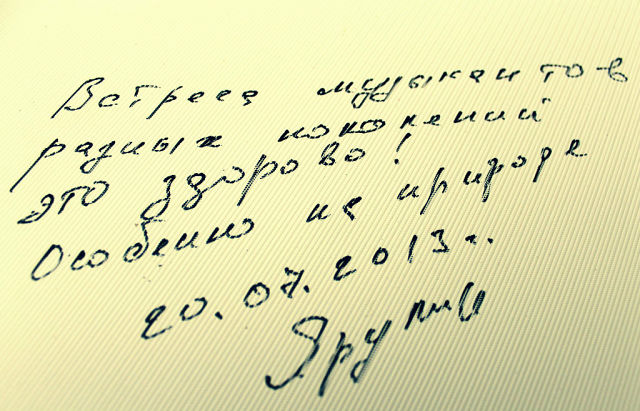 Встреса музыкантов
разных поколений
это здорово!
Особенно на природе
20.07.2013г.